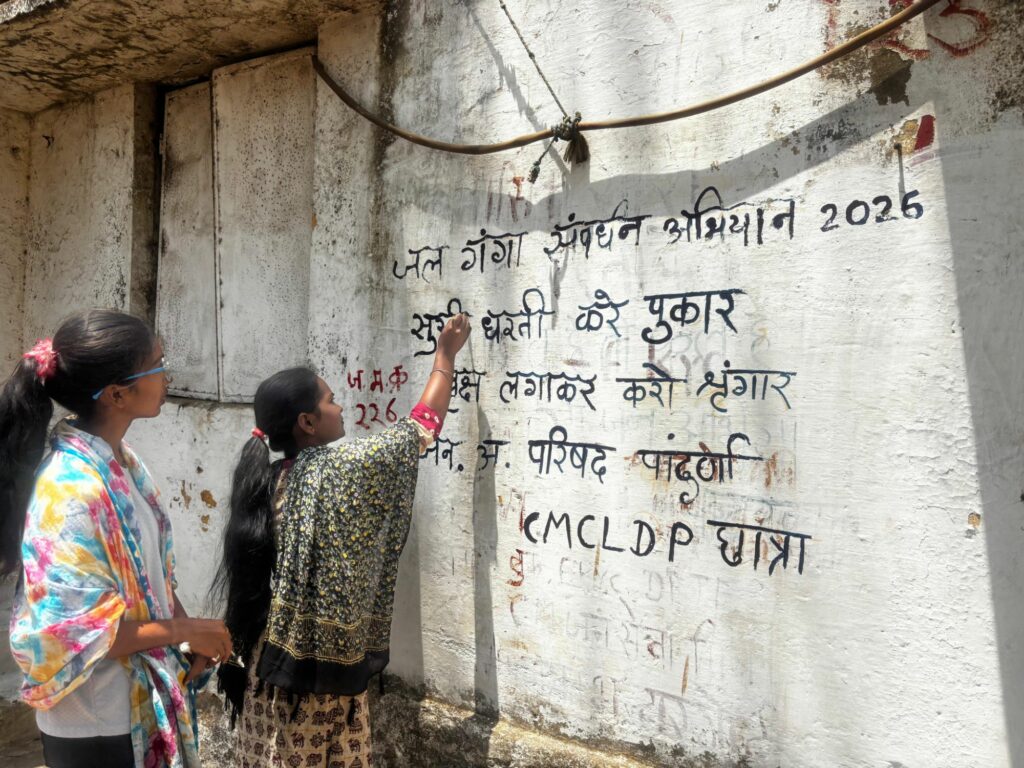 जल गंगा संवर्धन अभियान 2026
धरती करे पुकार
वृक्ष लगाकर करो श्रृंगार
ज.म.क्र
226
जन. अ. परिषद पांढुर्णा
CMCLDP छात्रा